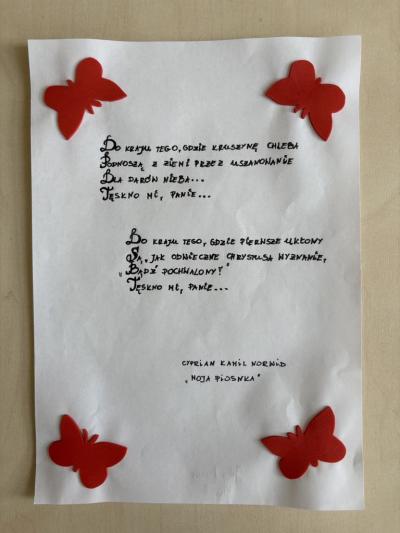 DO KRAJU TEGO, GDZIE KRUSZYNĘ CHLEBA
PODNOSZĄ Z ZIEMI PRZEZ USZANOWANIE
DLA DARÓW NIEBA...
TĘSKNO MI, PANIE...
DO KRAJU TEGO, GDZIE PIERWSZE UKŁONY
SĄ, JAK ODWIECZNE CHRYSTUSA WYZNANIE,
„BĄDŹ POCHWALONY!"
TĘSKNO MI, PANIE...
CYPRIAN KAMIL NORWID
„MOJA PIOSNKA"